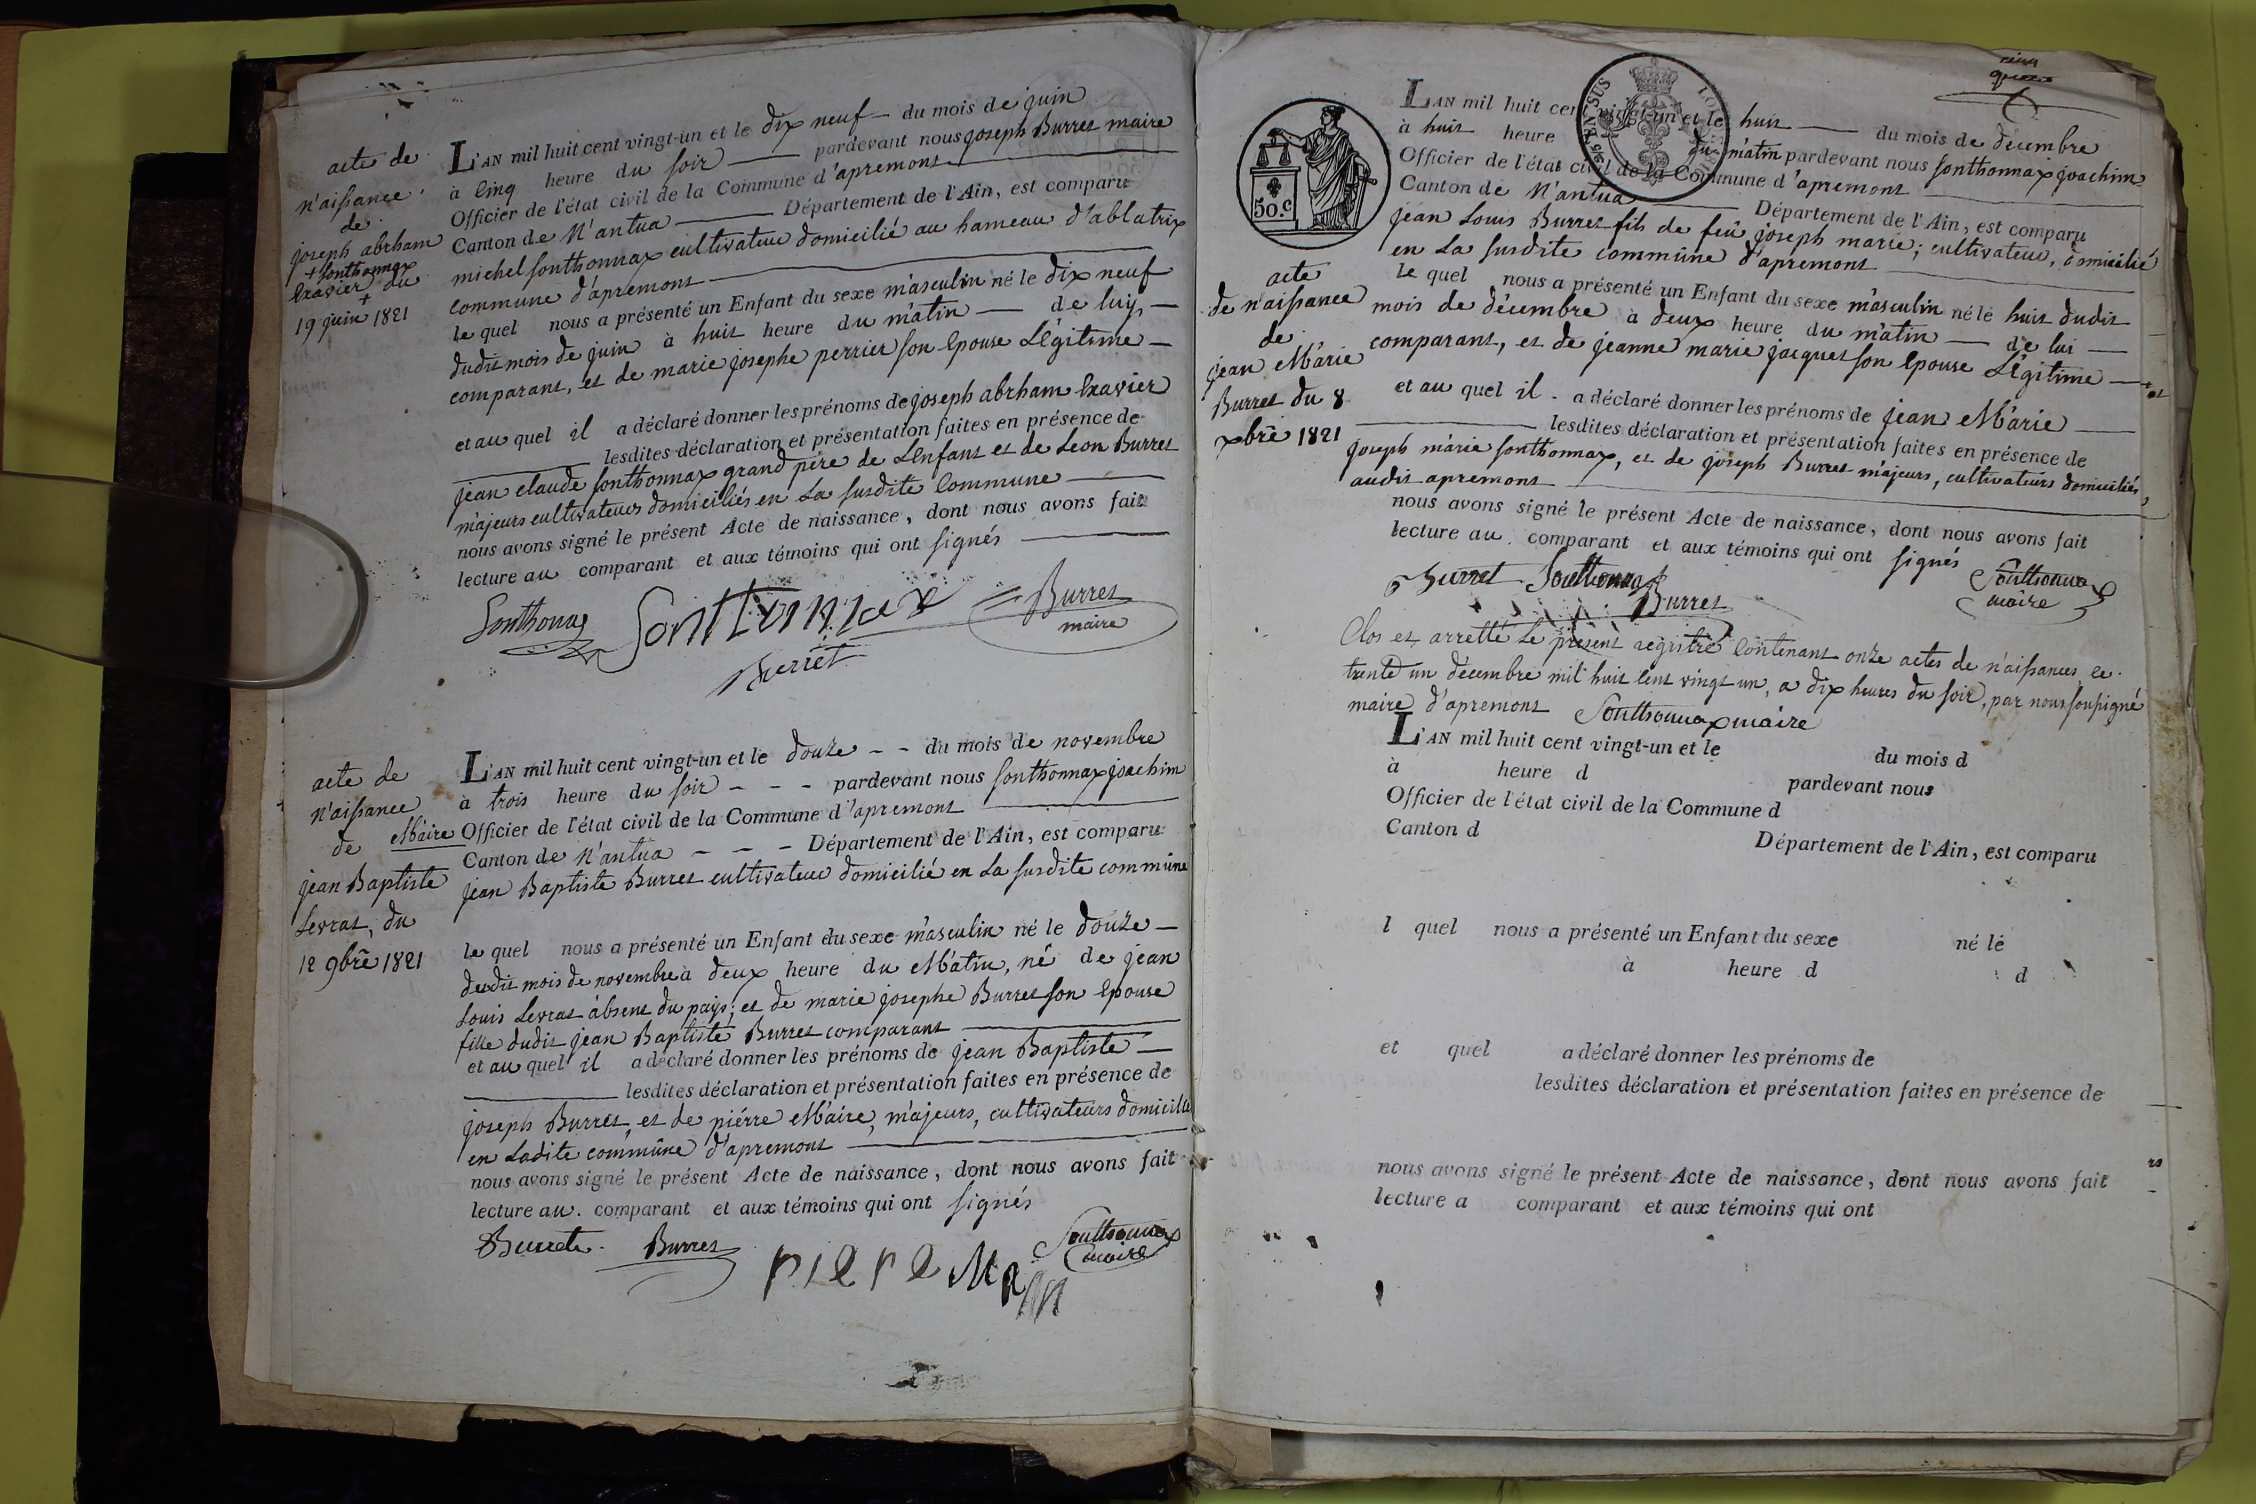 acte de
n'aissance
de
joseph abrham
+ Sonthonnax
Exavier du
+
19 juin 1821
L'AN mil huit cent vingt-un et le dix neuf — du mois de juin
à Cinq heure du soir — pardevant nous joseph Burret maire
Officier de l'état civil de la Commune d'apremont
Canton de N'antua — Département de l'Ain, est comparu
michel Sonthonnax cultivateur domicilié au hameau d'ablatrix
commune d'apremont
le quel nous a présenté un Enfant du sexe masculin né le dix neuf
dudit mois de juin à huit heure du matin — de luy, —
comparant, et de marie josephe perrier son Epouse Légitime —
et au quel il a déclaré donner les prénoms de joseph abrham Exavier
lesdites déclaration et présentation faites en présence de
jean claude Sonthonnax grand père de L'enfant et de Leon Burret
majeurs cultivateurs domiciliés en La susdite Commune
nous avons signé le présent Acte de naissance, dont nous avons fait
lecture au comparant et aux témoins qui ont signés
Sonthonax Sontonnax Burret
maire
Burret
acte de
n'aissance
de Maire
jean Baptiste
Levrat, du
12 9bre 1821
L'AN mil huit cent vingt-un et le douze - - du mois de novembre
à trois heure du soir - - - pardevant nous Sonthonnax joachim
Officier de l'état civil de la Commune d'apremont
Canton de N'antua - - - Département de l'Ain, est comparu
jean Baptiste Burret cultivateur domicilié en La susdite commune
le quel nous a présenté un Enfant du sexe masculin né le douze —
dudit mois de novembre à deux heure du Matin, né de jean
Louis Levrat absent du pays; et de marie josephe Burret son Epouse
fille dudit jean Baptiste Burret comparant
et au quel il a déclaré donner les prénoms de jean Baptiste —
lesdites déclaration et présentation faites en présence de
joseph Burret, et de piérre Maire, majeurs, cultivateurs domiciliés
en Ladite commune d'apremont
nous avons signé le présent Acte de naissance, dont nous avons fait
lecture au. comparant et aux témoins qui ont signés
Burret. Burret piere Sonthonnax
maire
50.C
acte
de n'aissance
de
jean Marie
Burret du 8
xbre 1821
L'AN mil huit cent vingt-un et le huit — du mois de décembre
à huit heure du matin pardevant nous Sonthonnax joachim
Officier de l'état civil de la Commune d'apremont
Canton de N'antua — Département de l'Ain, est comparu
jean Louis Burret fils de feû joseph marie; cultivateur, domicilié
en La susdite commune d'apremont
le quel nous a présenté un Enfant du sexe masculin né lé huit dudit
mois de décembre à deux heure du matin — de lui —
comparant, et de jeanne marie jacquet son Epouse Légitime —
et au quel il - a déclaré donner les prénoms de jean Marie —
lesdites déclaration et présentation faites en présence de
joseph marie Sonthonnax, et de joseph Burret majeurs, cultivateurs domiciliés,
audit apremont
nous avons signé le présent Acte de naissance, dont nous avons fait
lecture au. comparant et aux témoins qui ont signés
Burret Sonthonnax Sonthonnax
Burret maire
Clos et arretté Le present registre Contenant onze actes de n'aissances, ce.
trente un décembre mil huit Cent vingt un, a dix heures du soir, par nous soussigné
maire d'apremont Sonthonnax maire
L'AN mil huit cent vingt-un et le du mois d
à heure d pardevant nous
Officier de l'état civil de la Commune d
Canton d Département de l'Ain, est comparu
l quel nous a présenté un Enfant du sexe né lé
à heure d d
et quel a déclaré donner les prénoms de
lesdites déclaration et présentation faites en présence de
nous avons signé le présent Acte de naissance, dont nous avons fait
lecture a comparant et aux témoins qui ont